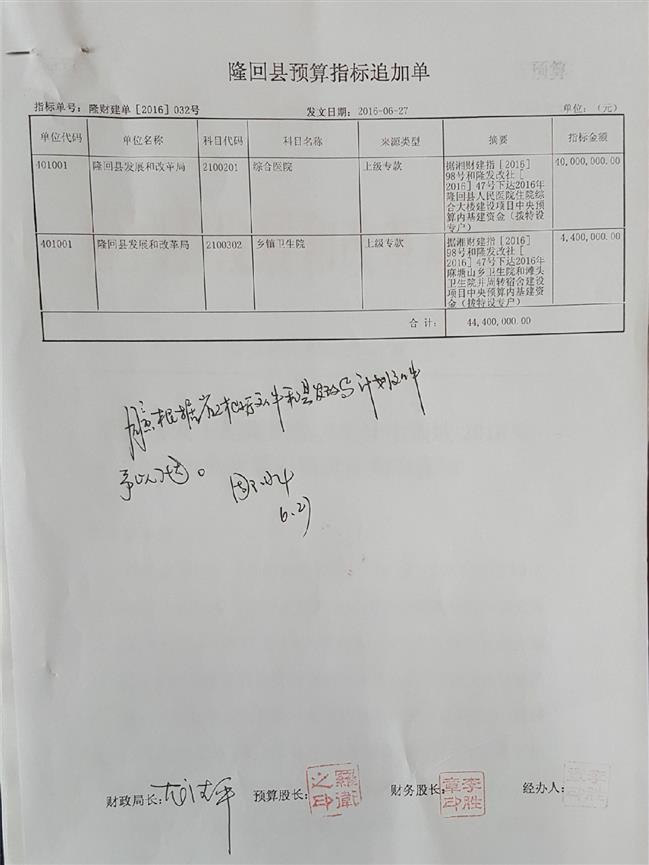 隆回县预算指标追加单
预算
指标单号：隆财建单[2016]032号 发文日期：2016-06-27 单位：（元）
单位代码 单位名称 科目代码 科目名称 来源类型 摘要 指标金额
401001 隆回县发展和改革局 2100201 综合医院 上级专款 40,000,000.00
据湘财建指[2016]
98号和隆发改社[
2016]47号下达2016年
隆回县人民医院住院综
合大楼建设项目中央预
算内基建资金（拨特设
专户）
401001 隆回县发展和改革局 2100302 乡镇卫生院 上级专款 4,400,000.00
据湘财建指[2016]
98号和隆发改社[
2016]47号下达2016年
麻塘山乡卫生院和滩头
卫生院周转宿舍建设
项目中央预算内基建资
金（拨特设专户）
合计： 44,400,000.00
根据省 文件和县发改局计划文件
予以下达。
6.27
财政局长： 预算股长： 羅衛之印 财务股长： 李胜章印 经办人：